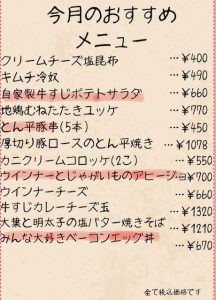 今月のおすすめ
メニュー
クリームチーズ塩昆布 …¥400
キムチ冷奴 …¥490
自家製牛すじポテトサラダ …¥660
地鶏むねたたきユッケ …¥770
とん平豚串(5本) …¥450
厚切り豚ロースのとん平焼き …¥1078
カニクリームコロッケ(2こ) …¥550
ウインナーとじゃがいものアヒージョ¥700
ウインナーチーズ …¥660
牛すじカレーチーズ玉 …¥1320
大葉と明太子の塩バター焼きそば …¥1210
みんな大好きベーコンエッグ丼 …¥670
全て税込価格です